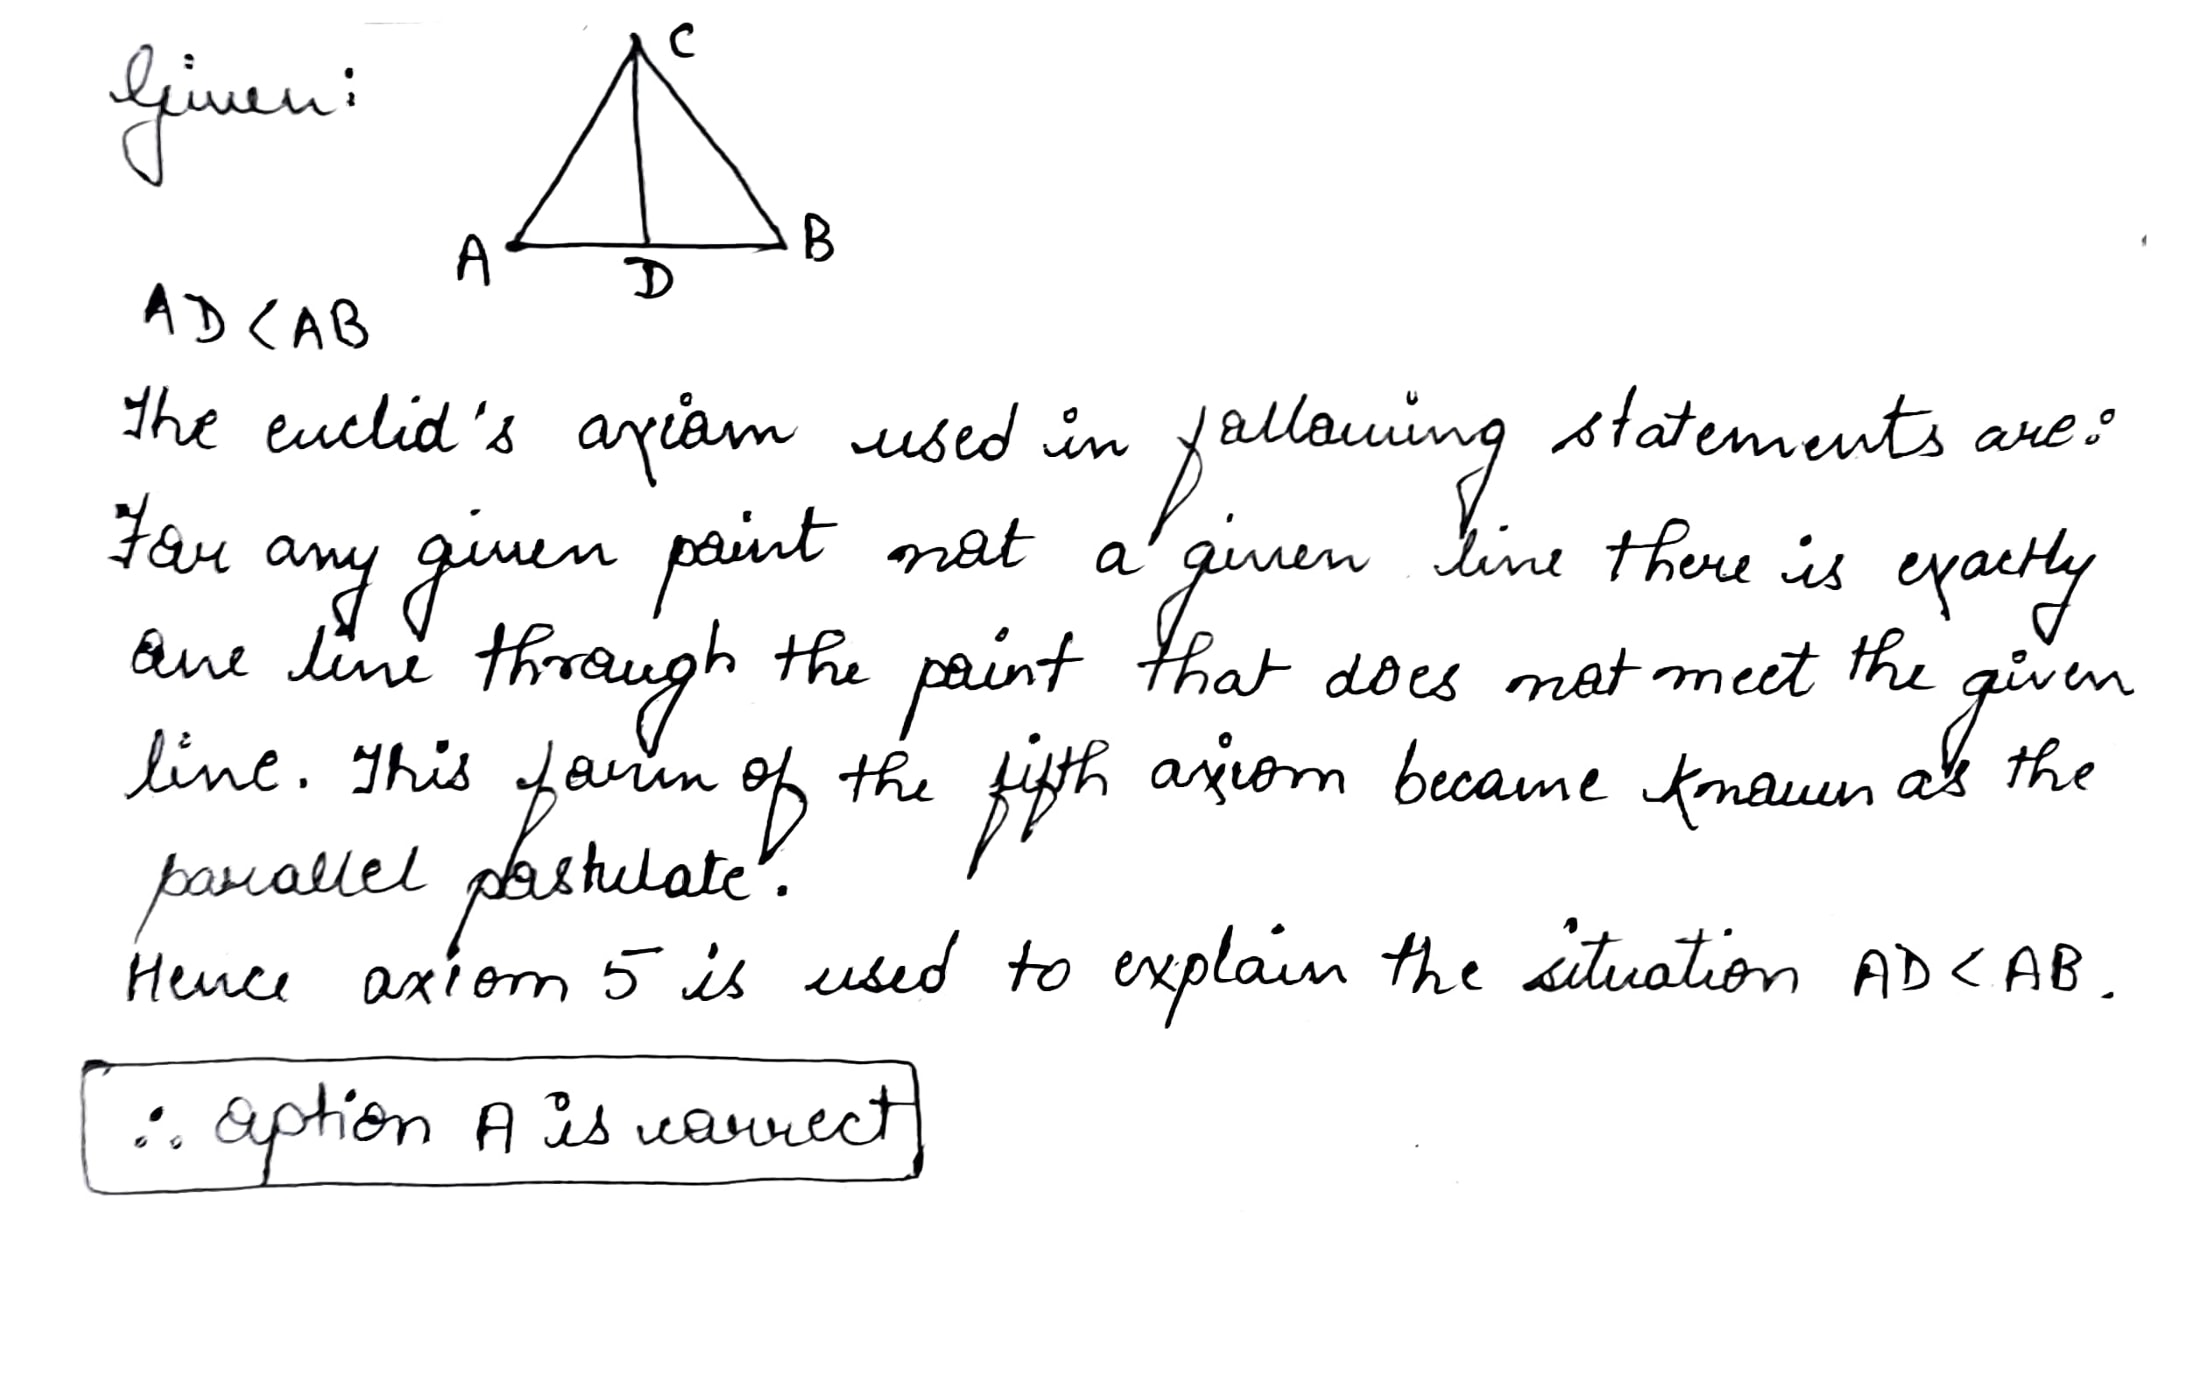 Given:
C
A
B
D
AD < AB
The euclid's axiom used in following statements are:
For any given point not a given line there is exactly
one line through the point that does not meet the given
line. This form of the fifth axiom became known as the
parallel postulate.
Hence axiom 5 is used to explain the situation AD < AB.
∴ option A is correct